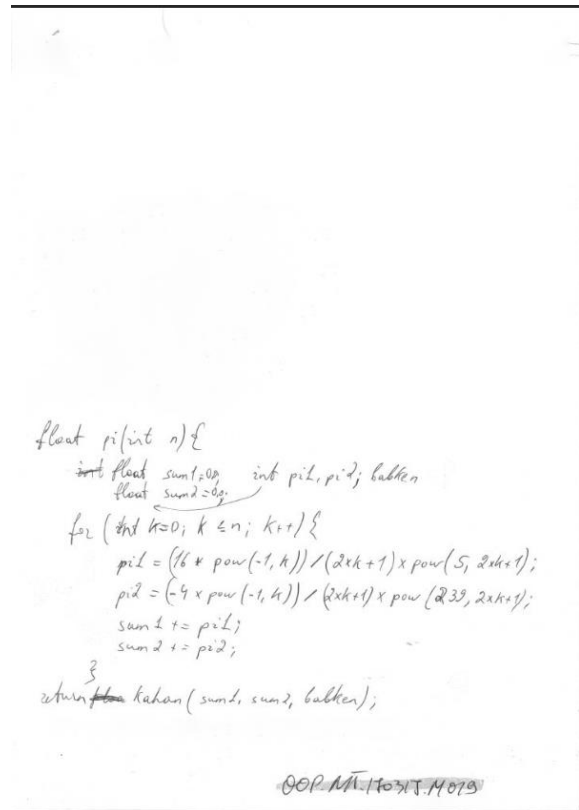 float pi(int n){
int float sum1=0.0; int pi1, pi2; balken
float sum2=0.0;
for (int k=0; k ≤ n; k++) {
pi1 = (16 * pow(-1, k)) / (2xk+1) x pow(5, 2xk+1);
pi2 = (-4 x pow(-1, k)) / (2xk+1) x pow (239, 2xk+1);
sum1 += pi1;
sum2 += pi2;
}
return Kahan (sum1, sum2, balken);
OOP.MT.170317.M029